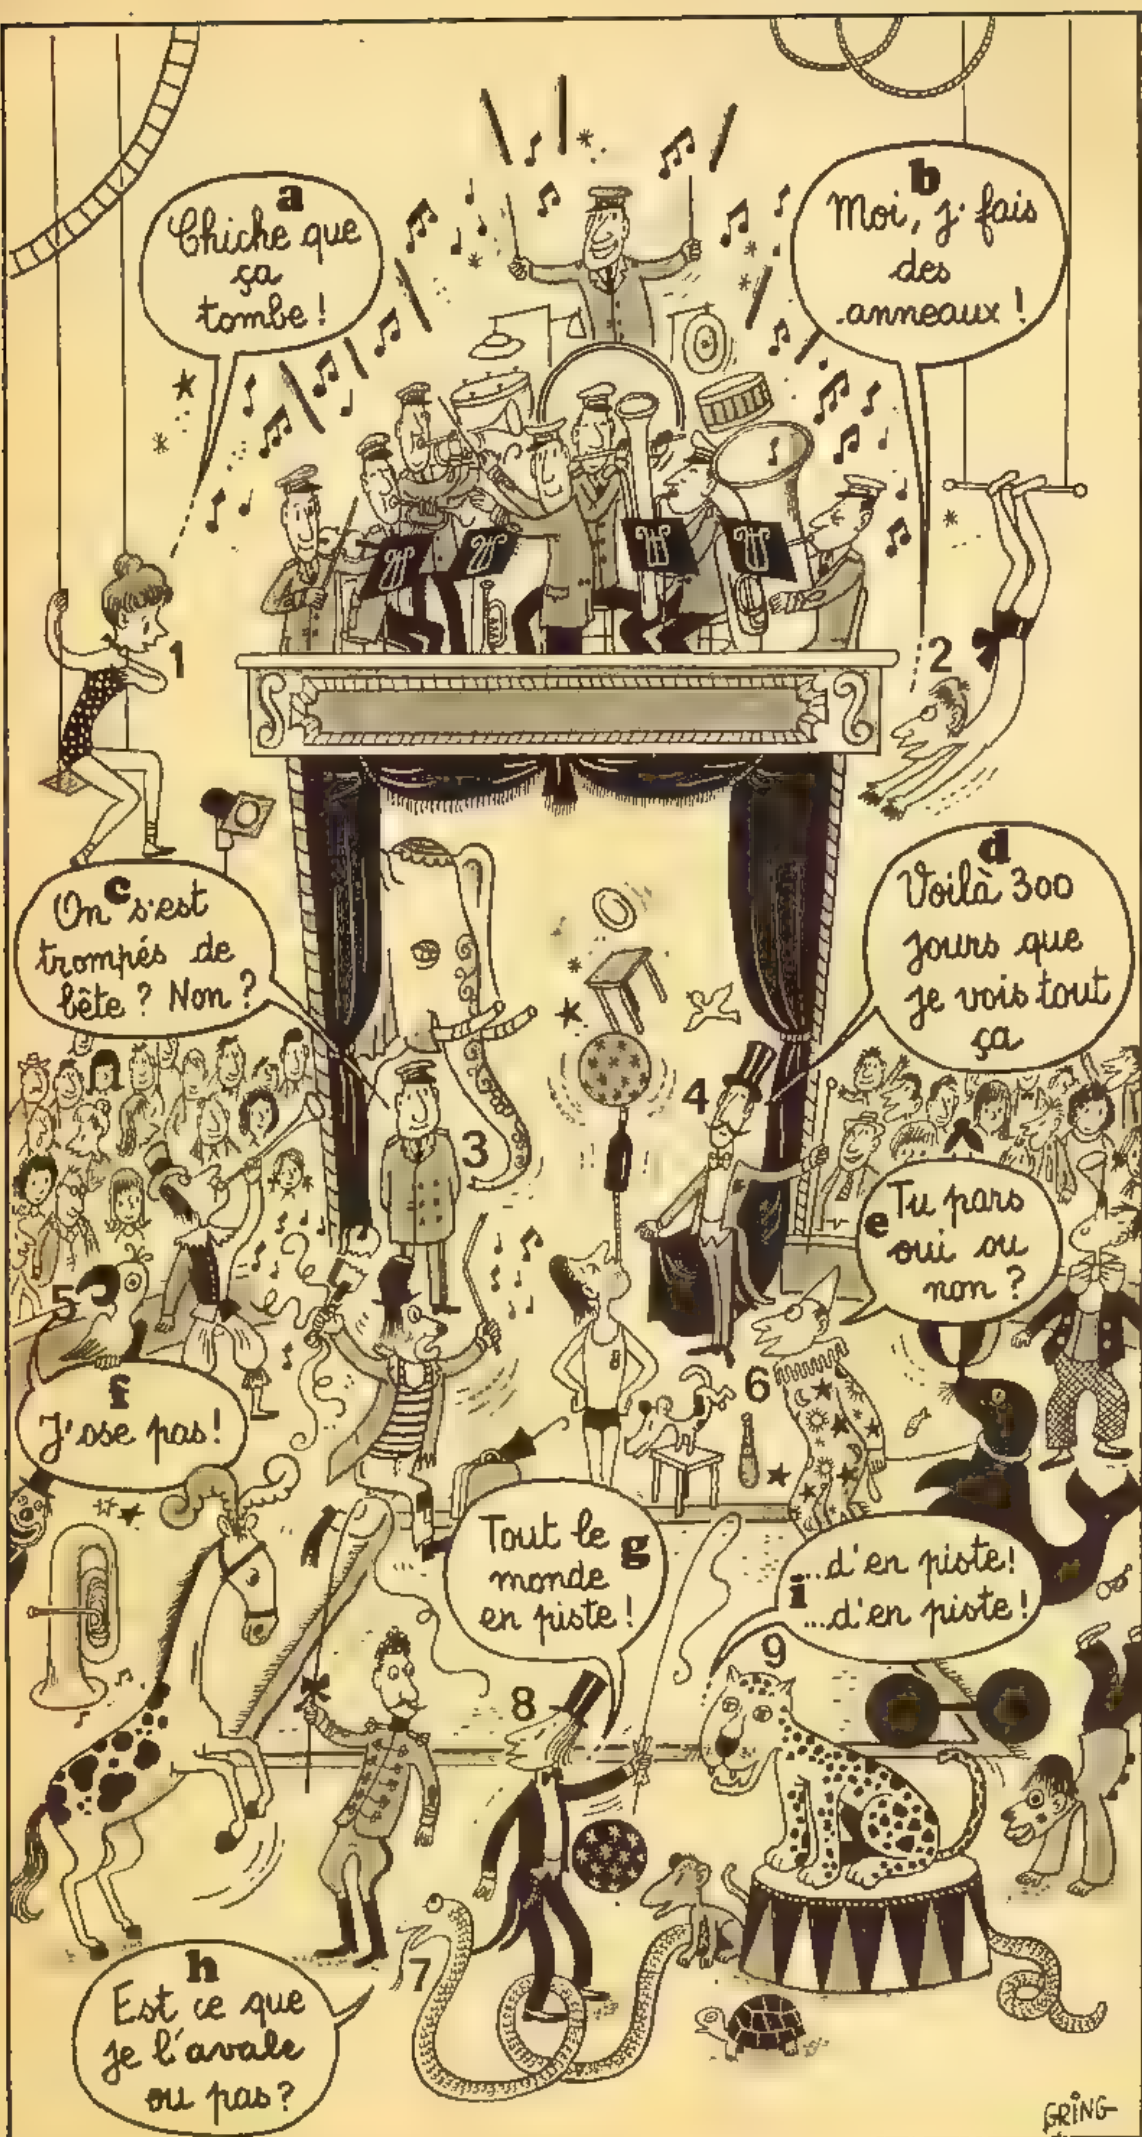 a
Chiche que
ça
tombe !
b
Moi, j' fais
des
anneaux !
1
2
c
On s'est
trompés de
bête ? Non ?
d
Voilà 300
jours que
je vois tout
ça
3
4
e
Tu pars
oui ou
non ?
5
f
J'ose pas !
8
6
g
Tout le
monde
en piste !
i
...d'en piste !
...d'en piste !
8
9
7
h
Est ce que
je l'avale
ou pas ?
GRING